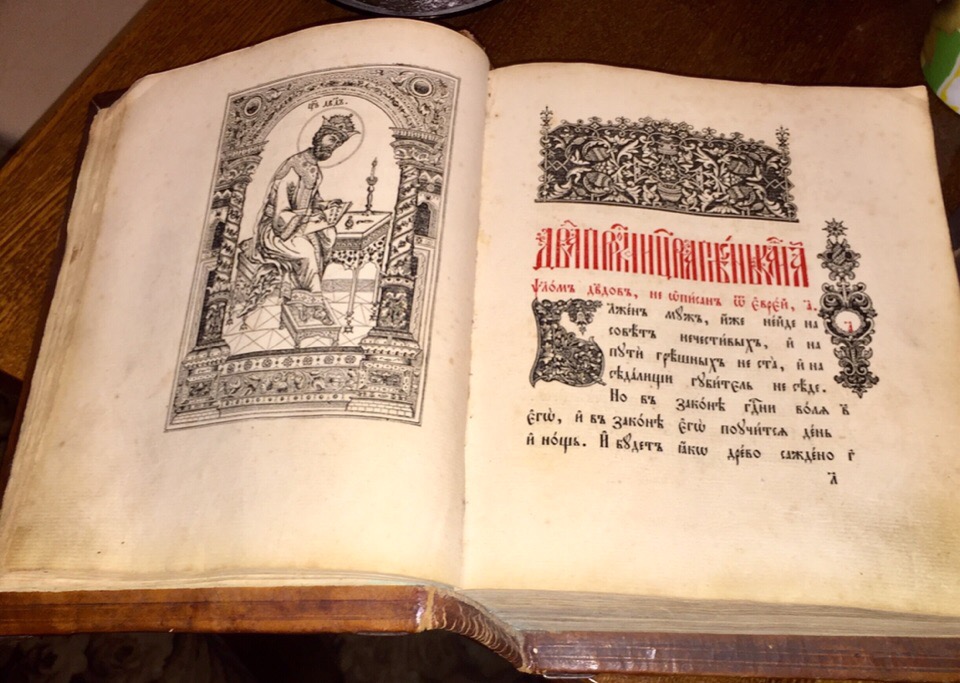 цр҃ь дв҃дъ.
ѱло́мъ дв҃довъ, не ѡ҆пи́санъ ѿ є҆врє́й, а҃.
Блаже́нъ му́жъ, и҆́же не и҆́де на
а҃
совѣ́тъ нечести́выхъ, и҆ на
пути̂ грѣ́шныхъ не ста̀, и҆ на
сѣда́лищи губи́тель не сѣ́де.
Но въ зако́нѣ гдⷭ҇ни во́лѧ
є҆гѡ̀, и҆ въ зако́нѣ є҆гѡ̀ поучи́тсѧ де́нь
и҆ но́щь. И҆ бу́детъ ꙗ҆́кѡ дре́во сажде́но
а҃